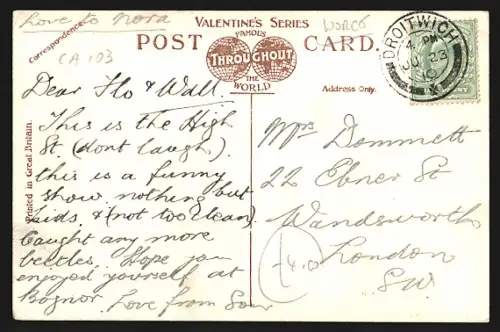 Love to Nora
VALENTINE'S SERIES
WORCS
Correspondence.
CA 103
POST CARD.
FAMOUS
THROUGHOUT
THE WORLD
Address Only.
DROITWICH
4 PM
JU 23
10
Printed in Great Britain.
Dear Flo & Wall.
This is the High
St (dont laugh).
this is a funny
show nothing but
kids, & (not too clean).
Caught any more
beetles. Hope you
enjoyed yourself at
Bognor. Love from
Mrs Dommett
22 Ebner St
Wandsworth
London
SW